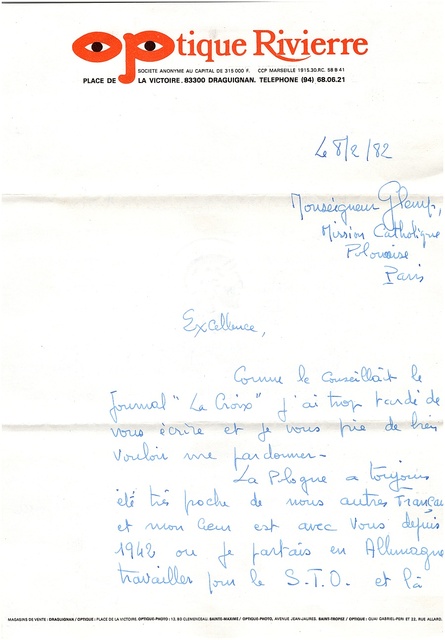 optique Rivierre
SOCIETE ANONYME AU CAPITAL DE 315 000 F. CCP MARSEILLE 1915.30.RC. 58 B 41
PLACE DE LA VICTOIRE. 83300 DRAGUIGNAN. TELEPHONE (94) 68.06.21
Le 8/2/82
Monseigneur Glemp,
Mission Catholique
Polonaise
Paris
Excellence,
Comme le conseillait le
Journal "La Croix" j'ai trop tardé de
vous écrire et je vous prie de bien
vouloir me pardonner -
La Pologne a toujours
été très proche de nous autres Français
et mon coeur est avec vous depuis
1942 ou je partais en Allemagne
travailler pour le S.T.O. et là
MAGASINS DE VENTE : DRAGUIGNAN / OPTIQUE : PLACE DE LA VICTOIRE. OPTIQUE-PHOTO : 13, BD CLEMENCEAU. SAINTE-MAXIME / OPTIQUE-PHOTO, AVENUE JEAN-JAURES. SAINT-TROPEZ / OPTIQUE : QUAI GABRIEL-PERI ET 22, RUE ALLARD